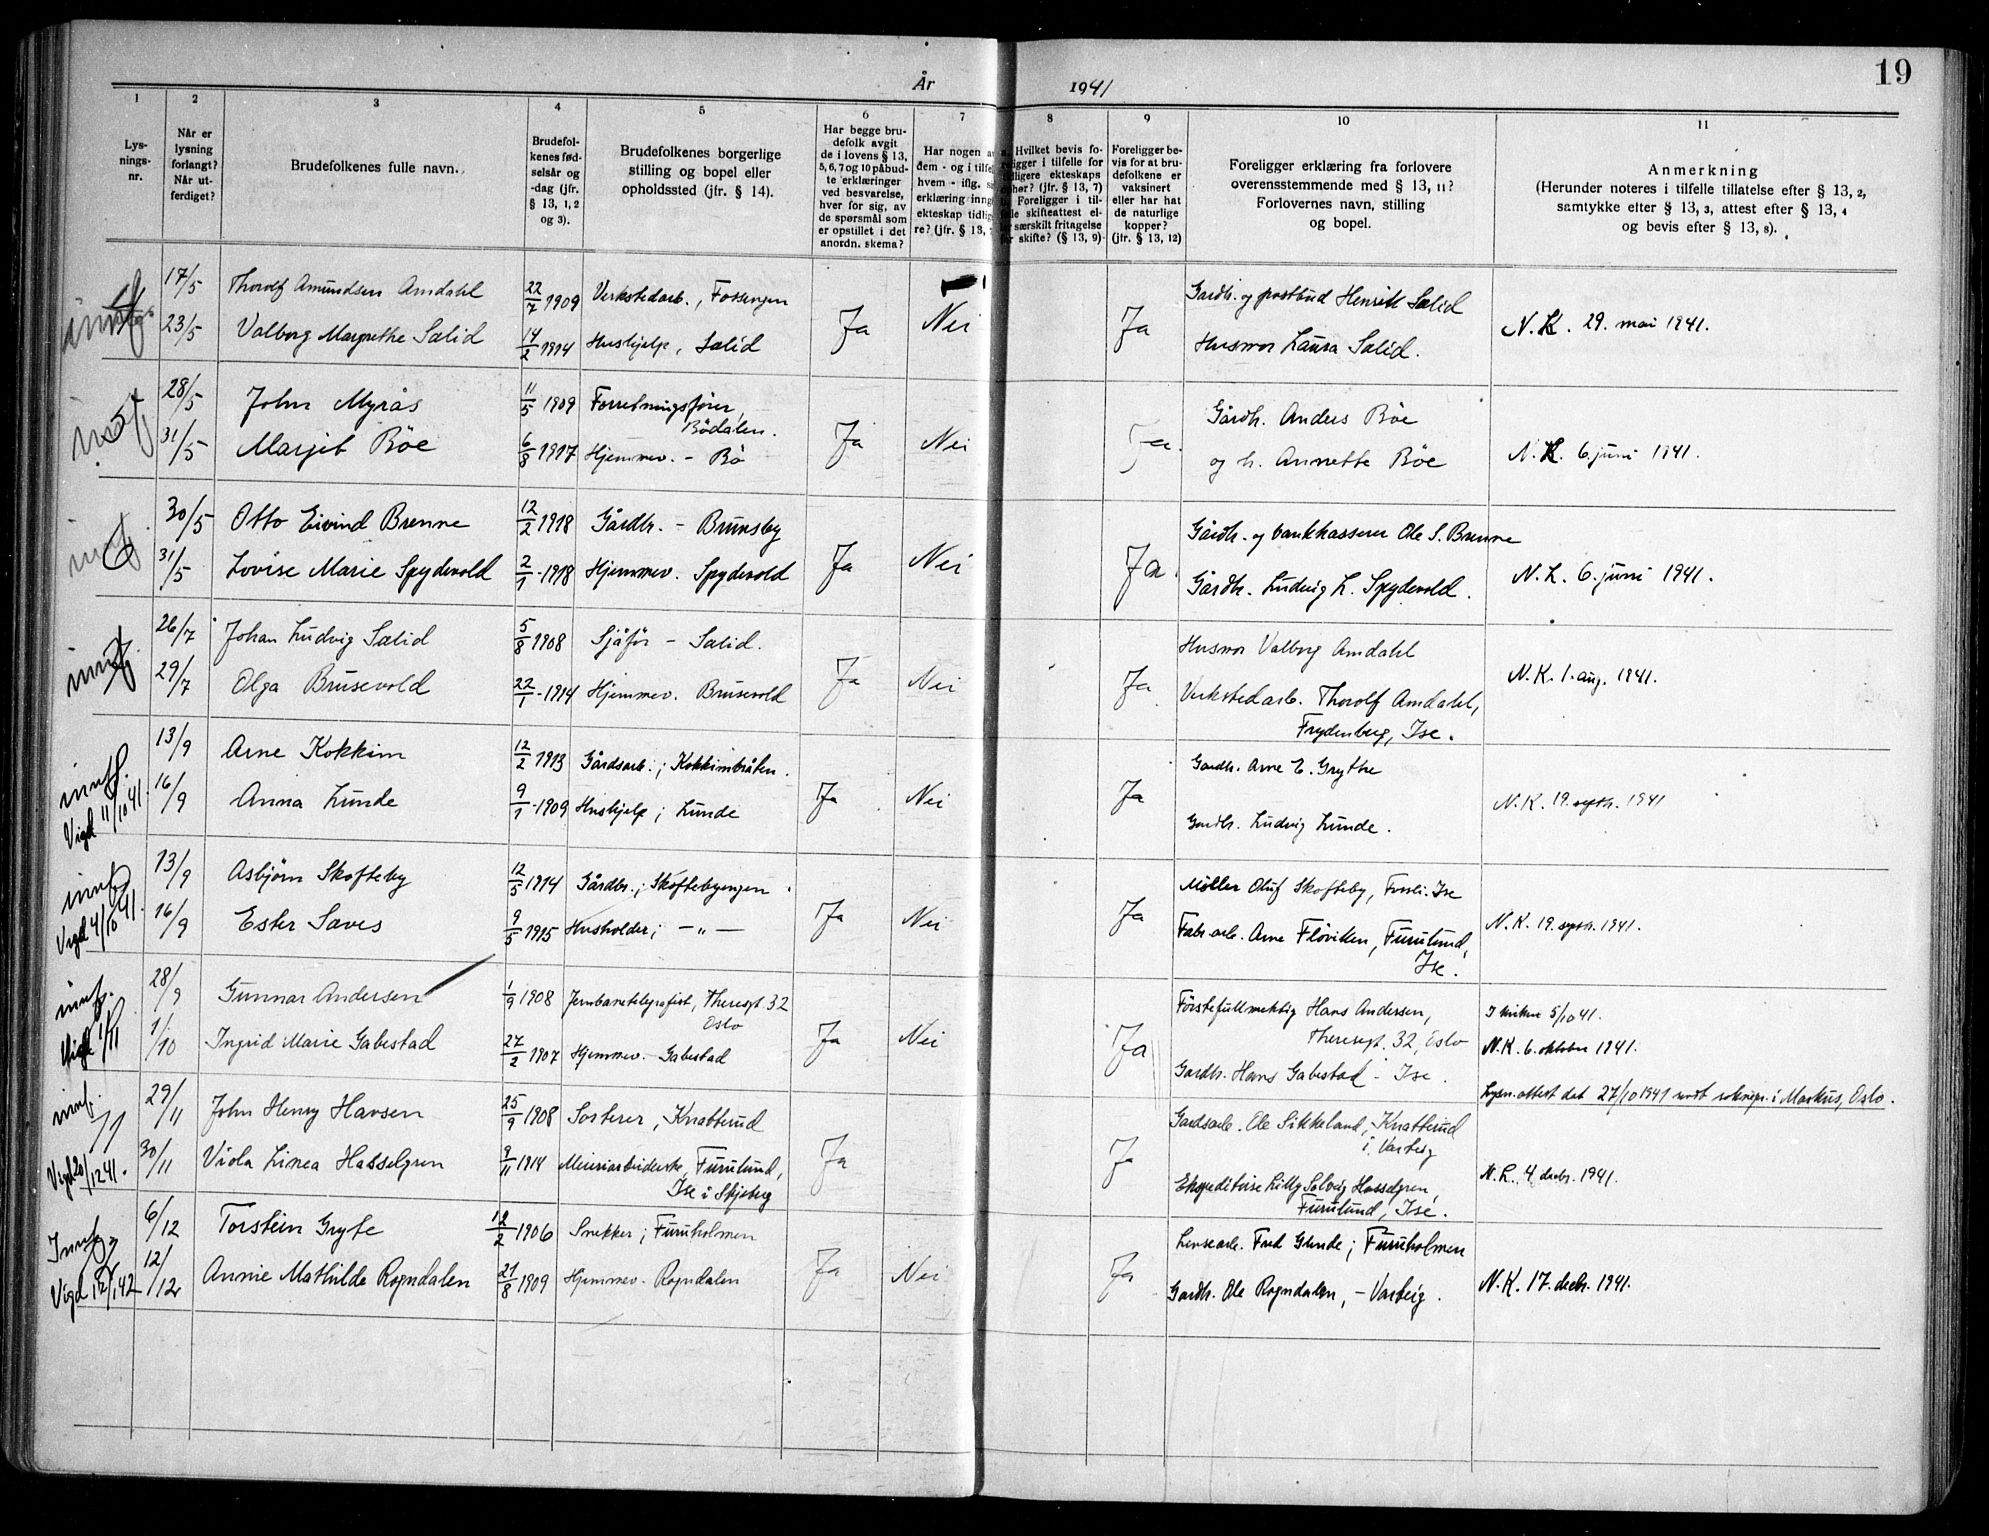 19
År 1941
1 2 3 4 5 6 7 8 9 10 11
Lys-
nings-
nr.
Når er
lysning
forlangt?
Når ut-
ferdiget?
Brudefolkenes fulle navn.
Brudefol-
kenes fød-
selsår og
-dag (jfr.
§ 13, 1, 2
og 3).
Brudefolkenes borgerlige
stilling og bopel eller
opholdssted (jfr. § 14).
Har begge bru-
defolk avgit
de i lovens § 13,
5, 6, 7 og 10 påbud-
te erklæringer
ved besvarelse,
hver for sig, av
de spørsmål som
er opstillet i det
anordn. skema?
Har nogen a
dem - og i tilfel
hvem - iflg. s
erklæring inng
ekteskap tidlig
re? (jfr. § 13,
Hvilket bevis fo-
religger i tilfelle for
tidligere ekteskaps
ophør? (jfr. § 13, 7)
Foreligger i til-
felle skifteattest el-
særskilt fritagelse
skifte? (§ 13, 9)
Foreligger be-
vis for at bru-
defolkene er
vaksinert
eller har hat
de naturlige
kopper?
(jfr. § 13, 12)
Foreligger erklæring fra forlovere
overensstemmende med § 13, 11?
Forlovernes navn, stilling
og bopel.
Anmerkning
(Herunder noteres i tilfelle tillatelse efter § 13, 2,
samtykke efter § 13, 3, attest efter § 13, 4
og bevis efter § 13, 8).
17/5 Thorolf Amundsen Amdahl 22/7 1909 Verkstedarb., Fossengen Gardbr. og postbud Henrik Sælid
23/5 Valborg Margrethe Sælid 14/2 1914 Hushjelp, Sælid Ja Nei Ja Husmor Laura Sælid. N.K. 29. mai 1941.
28/5 John Myrås 11/5 1909 Forretningsfører, Bødalen. Gårdbr. Anders Böe
31/5 Marjit Böe 6/8 1917 Hjemmev. - Bø Ja Nei Ja. og h. Annette Böe N.K. 6. juni 1941.
30/5 Otto Eivind Brenne 12/2 1918 Gårdbr. - Brunsby Gårdbr. og bankkasserer Ole S. Brenne
31/5 Lovise Marie Spydevold 2/1 - 1918 Hjemmev. Spydevold Ja Nei Ja. Gårdbr. Ludvig L. Spydevold. N.K. 6. juni 1941.
26/7 Johan Ludvig Sælid 5/8 1908 Sjåfør - Sælid. Husmor Valborg Amdahl
29/7 Olga Brusevold 22/1 - 1914 Hjemmev. Brusevold Ja Nei Ja. Verkstedarb. Thorolf Amdahl, N.K. 1. aug. 1941.
Frydenberg, Ise.
innf. 13/9 Arne Kokkim 12/2 1913 Gårdsarb.; Kokkimbråten. Gardbr. Arne E. Grytne
Vigd 11/10 41. 16/9 Anna Lunde 9/1 - 1909 Hushjelp; Lunde Ja Nei Ja Gardbr. Ludvig Lunde. N.K. 19. septb. 1941
innf. 13/9 Asbjörn Skofteby 12/5 1914 Gårdbr.; Skoftebyengen Møller Oluf Skofteby, Ise
Vigd 4/10 41. 16/9 Ester Saves 9/5 1915 Husholder; - „ - Ja Nei Ja Fabr.arb. Arne Fløviken, Furulund, Ise. N.K. 19. septb. 1941.
innf. 28/9 Gunnar Andersen 1/9 1908 Jernbanetelegrafist, Theresegt. 32 Oslo Førstefullmektig Hans Andersen, I kirken 5/10 41.
Vigd 1/11 1/10 Ingrid Marie Gabestad 27/2 1907 Hjemmev. Gabestad Ja Nei Ja Theresegt. 32, Oslo N.K. 6. oktober 1941.
Gardbr. Hans Gabestad - Ise.
innf. 29/11 John Henry Hansen 25/9 1908 Sorterer, Knatterud Gardsarb. Ole Sikkeland, Knatterud i Varteig Lysn.attest dat 27/10 1941 Markus, Oslo.
Vigd 20/12 41. 30/11 Viola Linea Hasselgren 9/11 1914 Meieriarbeiderske, Furulund, Ise i Skjeberg Ja Ja Ekspeditrise Lilly Solveig Hasselgren, Furulund, Ise. N.K. 4 decbr. 1941.
6/12 Torstein Gryte 12/2 1906 Snekker; Furuholmen Lensearb. Fred Glende; Furuholmen
12/12 Annie Mathilde Rogndalen 21/8 1909 Hjemmev. Rogndalen Ja Nei Ja Gardbr. Ole Rogndalen, - Varteig. N.K. 17. decbr. 1941.